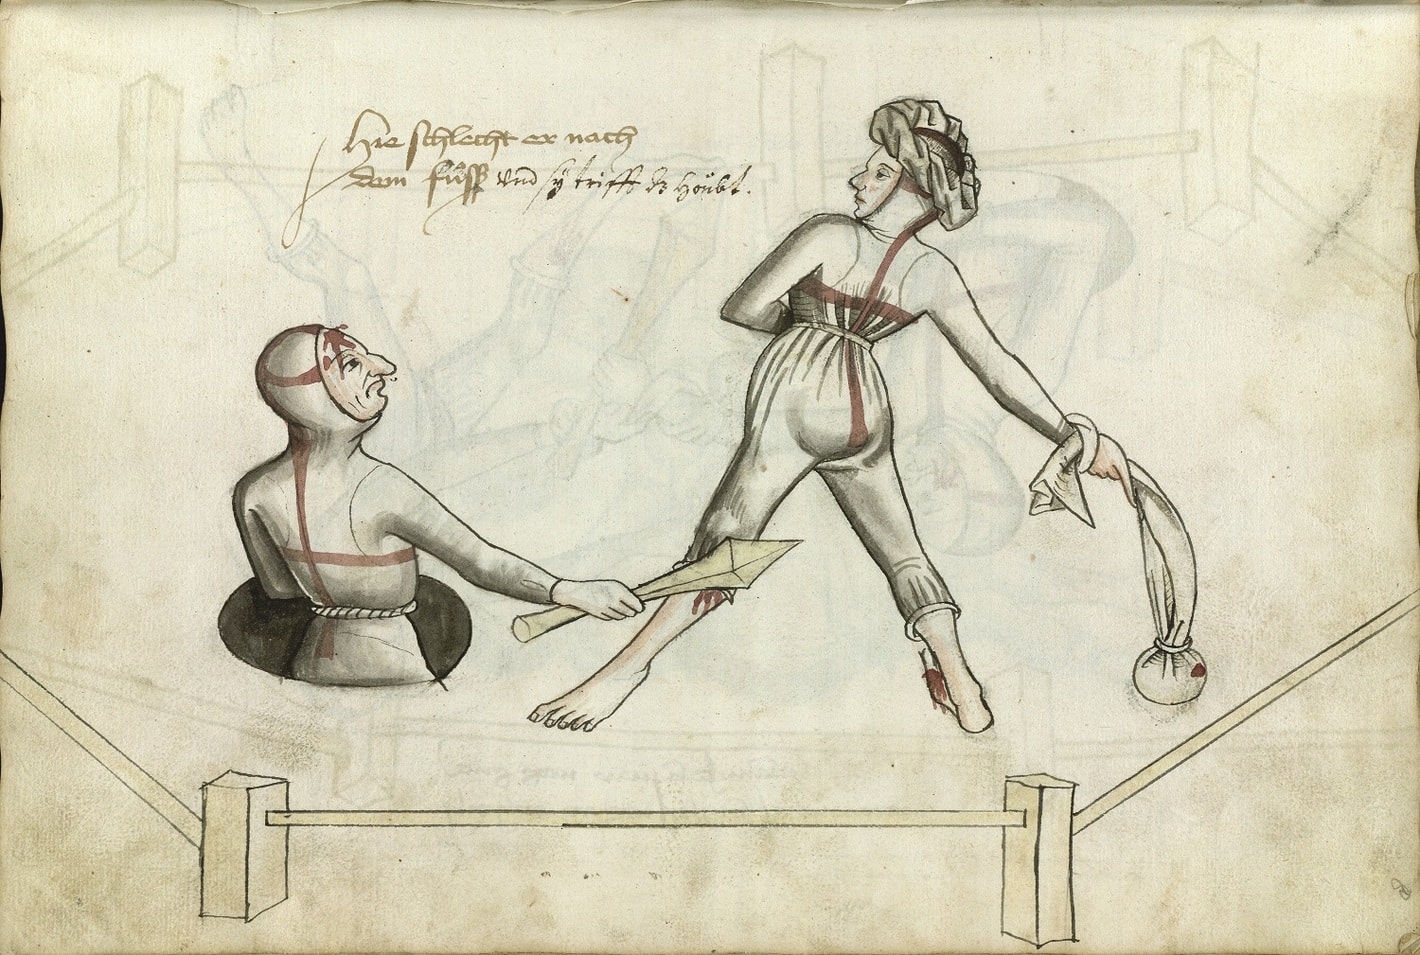 Hie schlecht er nach
dem füß und sÿ trifft dz höubt.